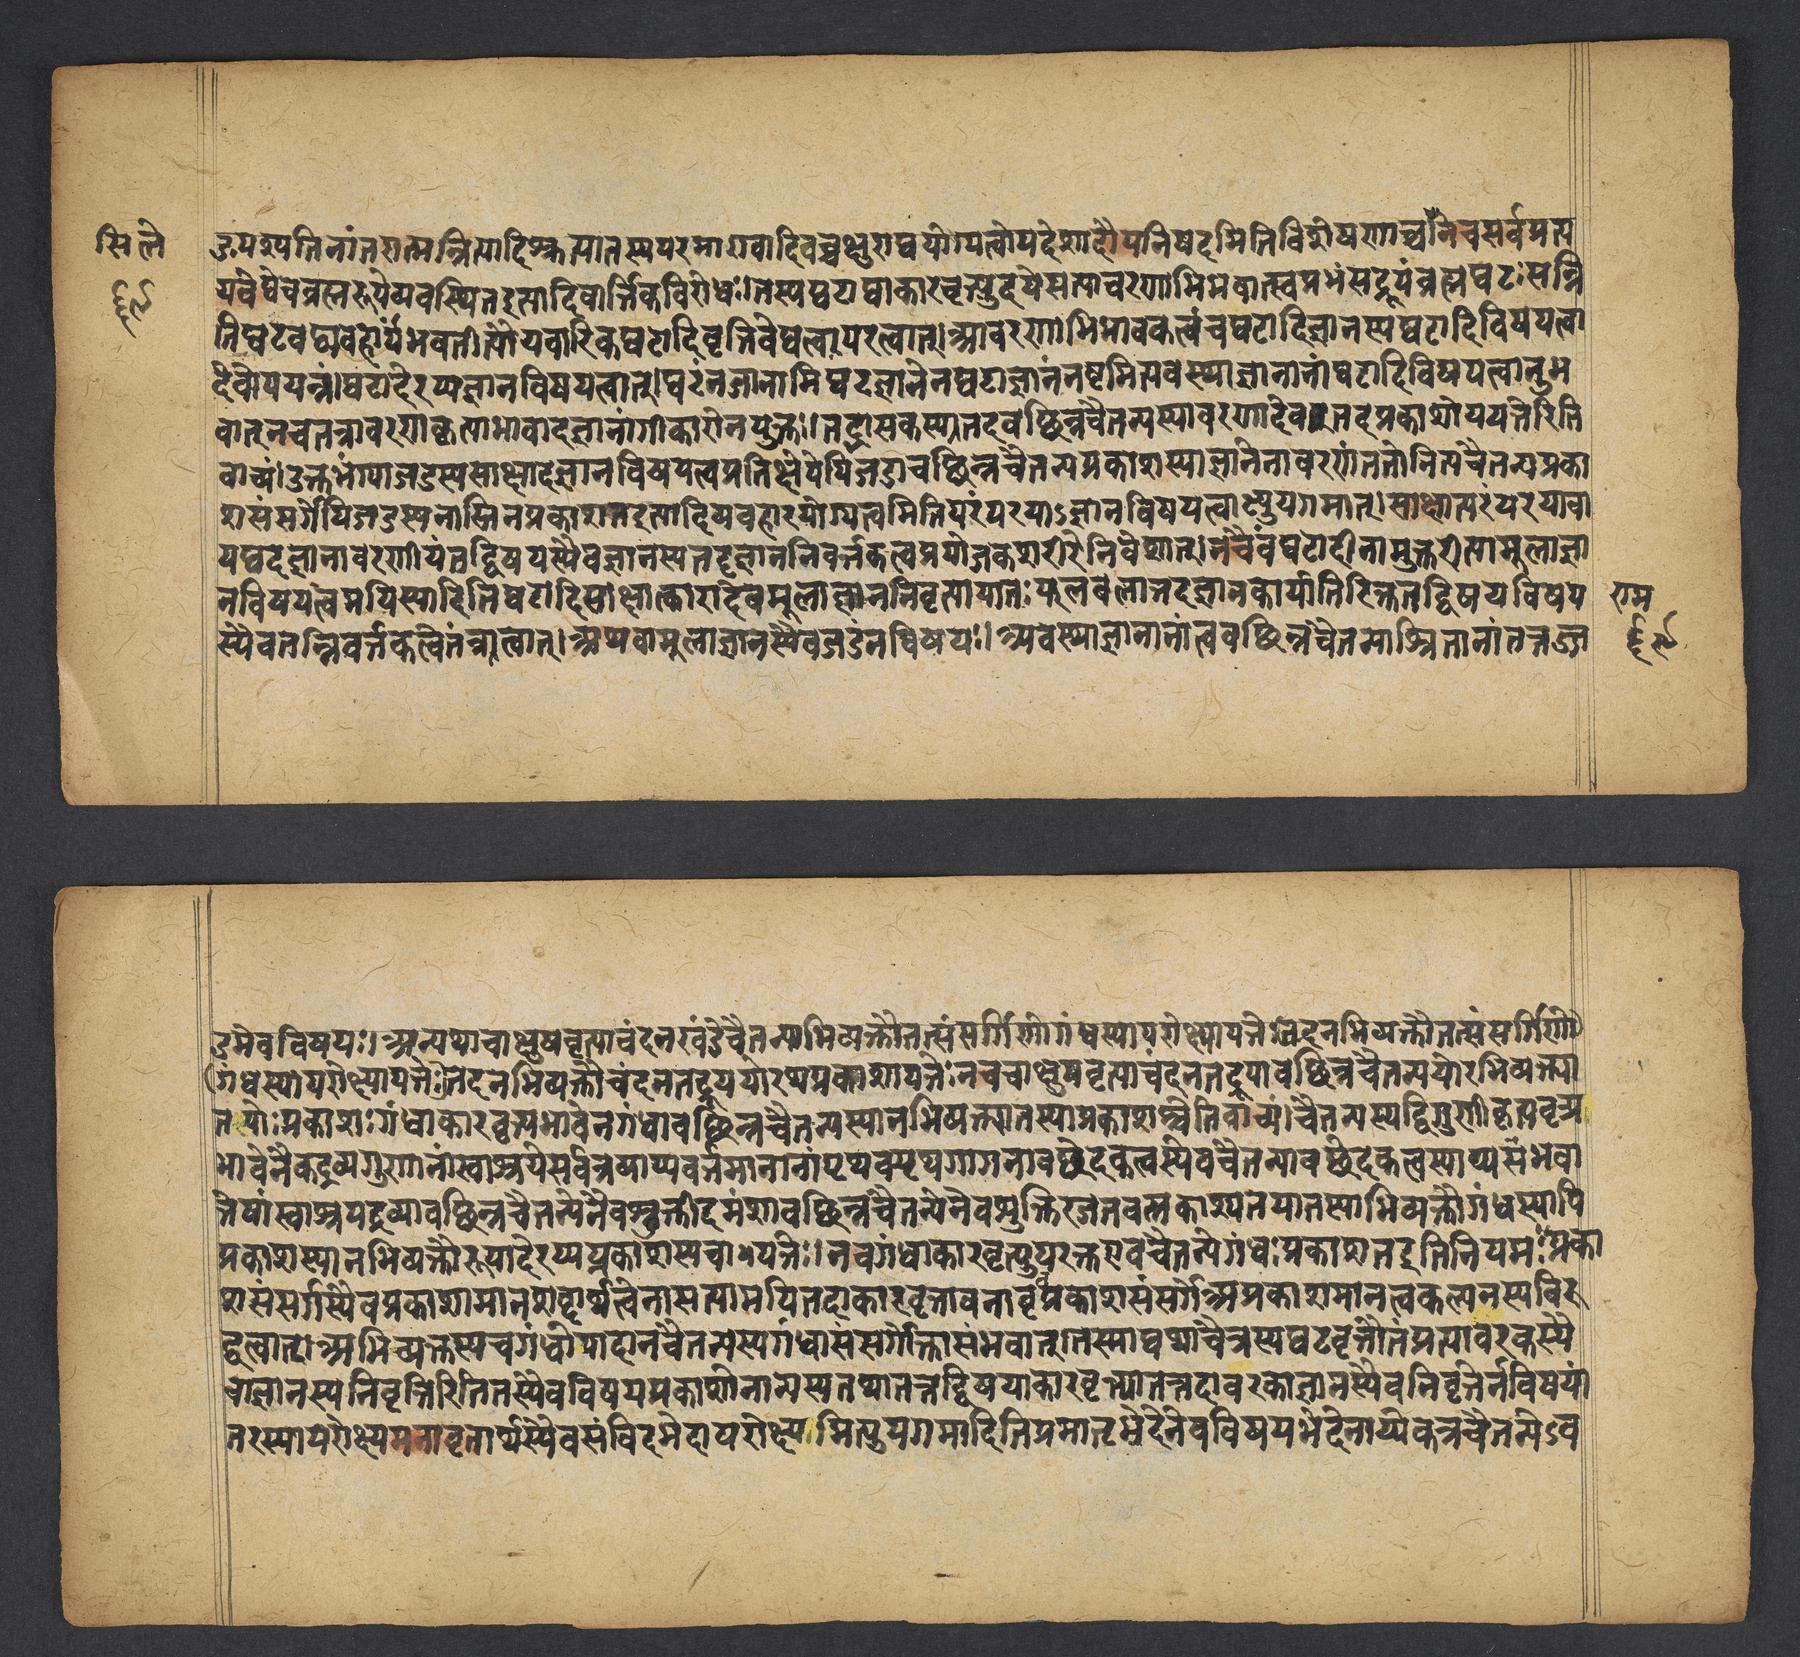 सि ले
६९
द्रूपउपतिनांतरात्मन्नित्यादिश्रुत्यातस्यपरमाण्वादिवच्चक्षुराद्ययोग्यत्वोपदेशाद्दौपनिषदमितिविशेषणाच्चनिचसर्वप्रत्य
यवेद्येचब्रह्मरूपेव्यवस्थितइत्यादिवार्त्तिकविरोधः।तस्यघटाद्याकारवृत्त्युदयेसत्यावरणाभिभवात्स्वप्रभंसद्रूपंब्रह्मघटःसन्नि
तिघटवद्व्यवहार्यंभवतीत्यौपचारिकघटादिवृत्तिवेद्यत्वपरत्वात्।आवरणाभिभावकत्वंचघटादिज्ञानस्यघटादिविषयत्वा
देवोपपन्नं।घटादेरप्यज्ञानविषयत्वात्।घटंनजानामिघटज्ञानेनघटाज्ञानंनष्टमित्यवस्थाज्ञानानांघटादिविषयत्वानुभ
वात्नचतत्रावरणकृत्याभावादज्ञानांगीकारोनयुक्तः।तद्भासकस्यतदवच्छिन्नचैतन्यस्यावरणादेवतदप्रकाशोपपत्तेरिति
वाच्यं।उक्तभंग्याजडस्यसाक्षादज्ञानविषयत्वप्रतिक्षेपेपिजडावच्छिन्नचैतन्यप्रकाशस्याज्ञानेनावरणंततोनित्यचैतन्यप्रका
शसंसर्गेपिजडस्यनास्तिनप्रकाशतइत्यादिव्यवहारयोग्यत्वमितिपरंपरयाऽज्ञानविषयत्वाभ्युपगमात्।साक्षात्परंपरयावा
यद्यदज्ञानावरणीयंतद्विषयस्यैवज्ञानस्यतदज्ञाननिवर्त्तकत्वप्रयोजकशरीरेनिवेशात्।नचैवंघटादीनामुक्तरीत्यामूलाज्ञा
नविषयत्वमपिस्यादितिघटादिसाक्षात्कारादेवमूलाज्ञाननिवृत्त्यापातःफलबलात्तदज्ञानकार्यातिरिक्ततद्विषयविषय
स्यैवतन्निवर्त्तकत्वेतंत्रत्वात्।अथवामूलाज्ञानस्यैवजडंनविषयः।अवस्थाज्ञानानांत्ववच्छिन्नचैतन्याश्रितानांतत्तज्ज
राम
६९
डमेवविषयः।अन्यथाचाक्षुषवृत्त्याचंदनखंडचैतन्याभिव्यक्तौतत्संसर्गिणोगंधस्यापरोक्ष्यापत्तेःतदनभिव्यक्तौतत्संसर्गिणो
गंधस्यापरोक्ष्यापत्तेःतदनभिव्यक्तौचंदनतद्रूपयोरप्यप्रकाशापत्तेःनचचाक्षुषवृत्त्याचंदनतद्रूपावच्छिन्नचैतन्ययोरभिव्यक्त्या
तयोःप्रकाशःगंधाकारवृत्त्यभावेनगंधावच्छिन्नचैतन्यस्यानभिव्यक्त्यातस्याप्रकाशश्चेतिवाच्यं।चैतन्यस्यद्विगुणीकृत्यवृत्त्य
भावेनैकद्रव्यगुणानांस्वाश्रयेसर्वत्रव्याप्यवर्त्तमानानांपृथक्पृथग्गगनावच्छेदकत्वस्येवचैतन्यावच्छेदकत्वस्याप्यसंभवा
त्तेषांस्वाश्रयद्रव्यावच्छिन्नचैतन्येनैवशुक्तीदमंशावच्छिन्नचैतन्येनैवशुक्तिरजतवत्प्रकाश्यतयातस्याभिव्यक्तौगंधस्यापि
प्रकाशस्यानभिव्यक्तौरूपादेरप्यप्रकाशस्यचापत्तेः।नचगंधाकारवृत्त्युपरक्तएवचैतन्येगंधःप्रकाशतइतिनियमःप्रका
शसंसर्गस्यैवप्रकाशमानशब्दार्थत्वेनासत्यामपितदाकारवृत्तावनावृतप्रकाशसंसर्गेअप्रकाशमानत्वकल्पनस्यविरु
द्धत्वात्।अभिव्यक्तस्यचगंधोपादानचैतन्यस्यगंधासंसर्गोक्त्यसंभवात्।तस्माद्यथाचैत्रस्यघटवृत्तौतंप्रत्यावरकस्यै
वाज्ञानस्यनिवृत्तिरितितस्यैवविषयप्रकाशोनान्यस्यतथातत्तद्विषयाकारवृत्त्यातत्तदावरकाज्ञानस्यैवनिवृत्तेर्नविषयां
तरस्यापरोक्ष्यमनावृतार्थस्यैवसंविदभेदापरोक्ष्यमित्युपगमादितिप्रमातृभेदेनेवविषयभेदेनाप्येकत्रचैतन्येऽव